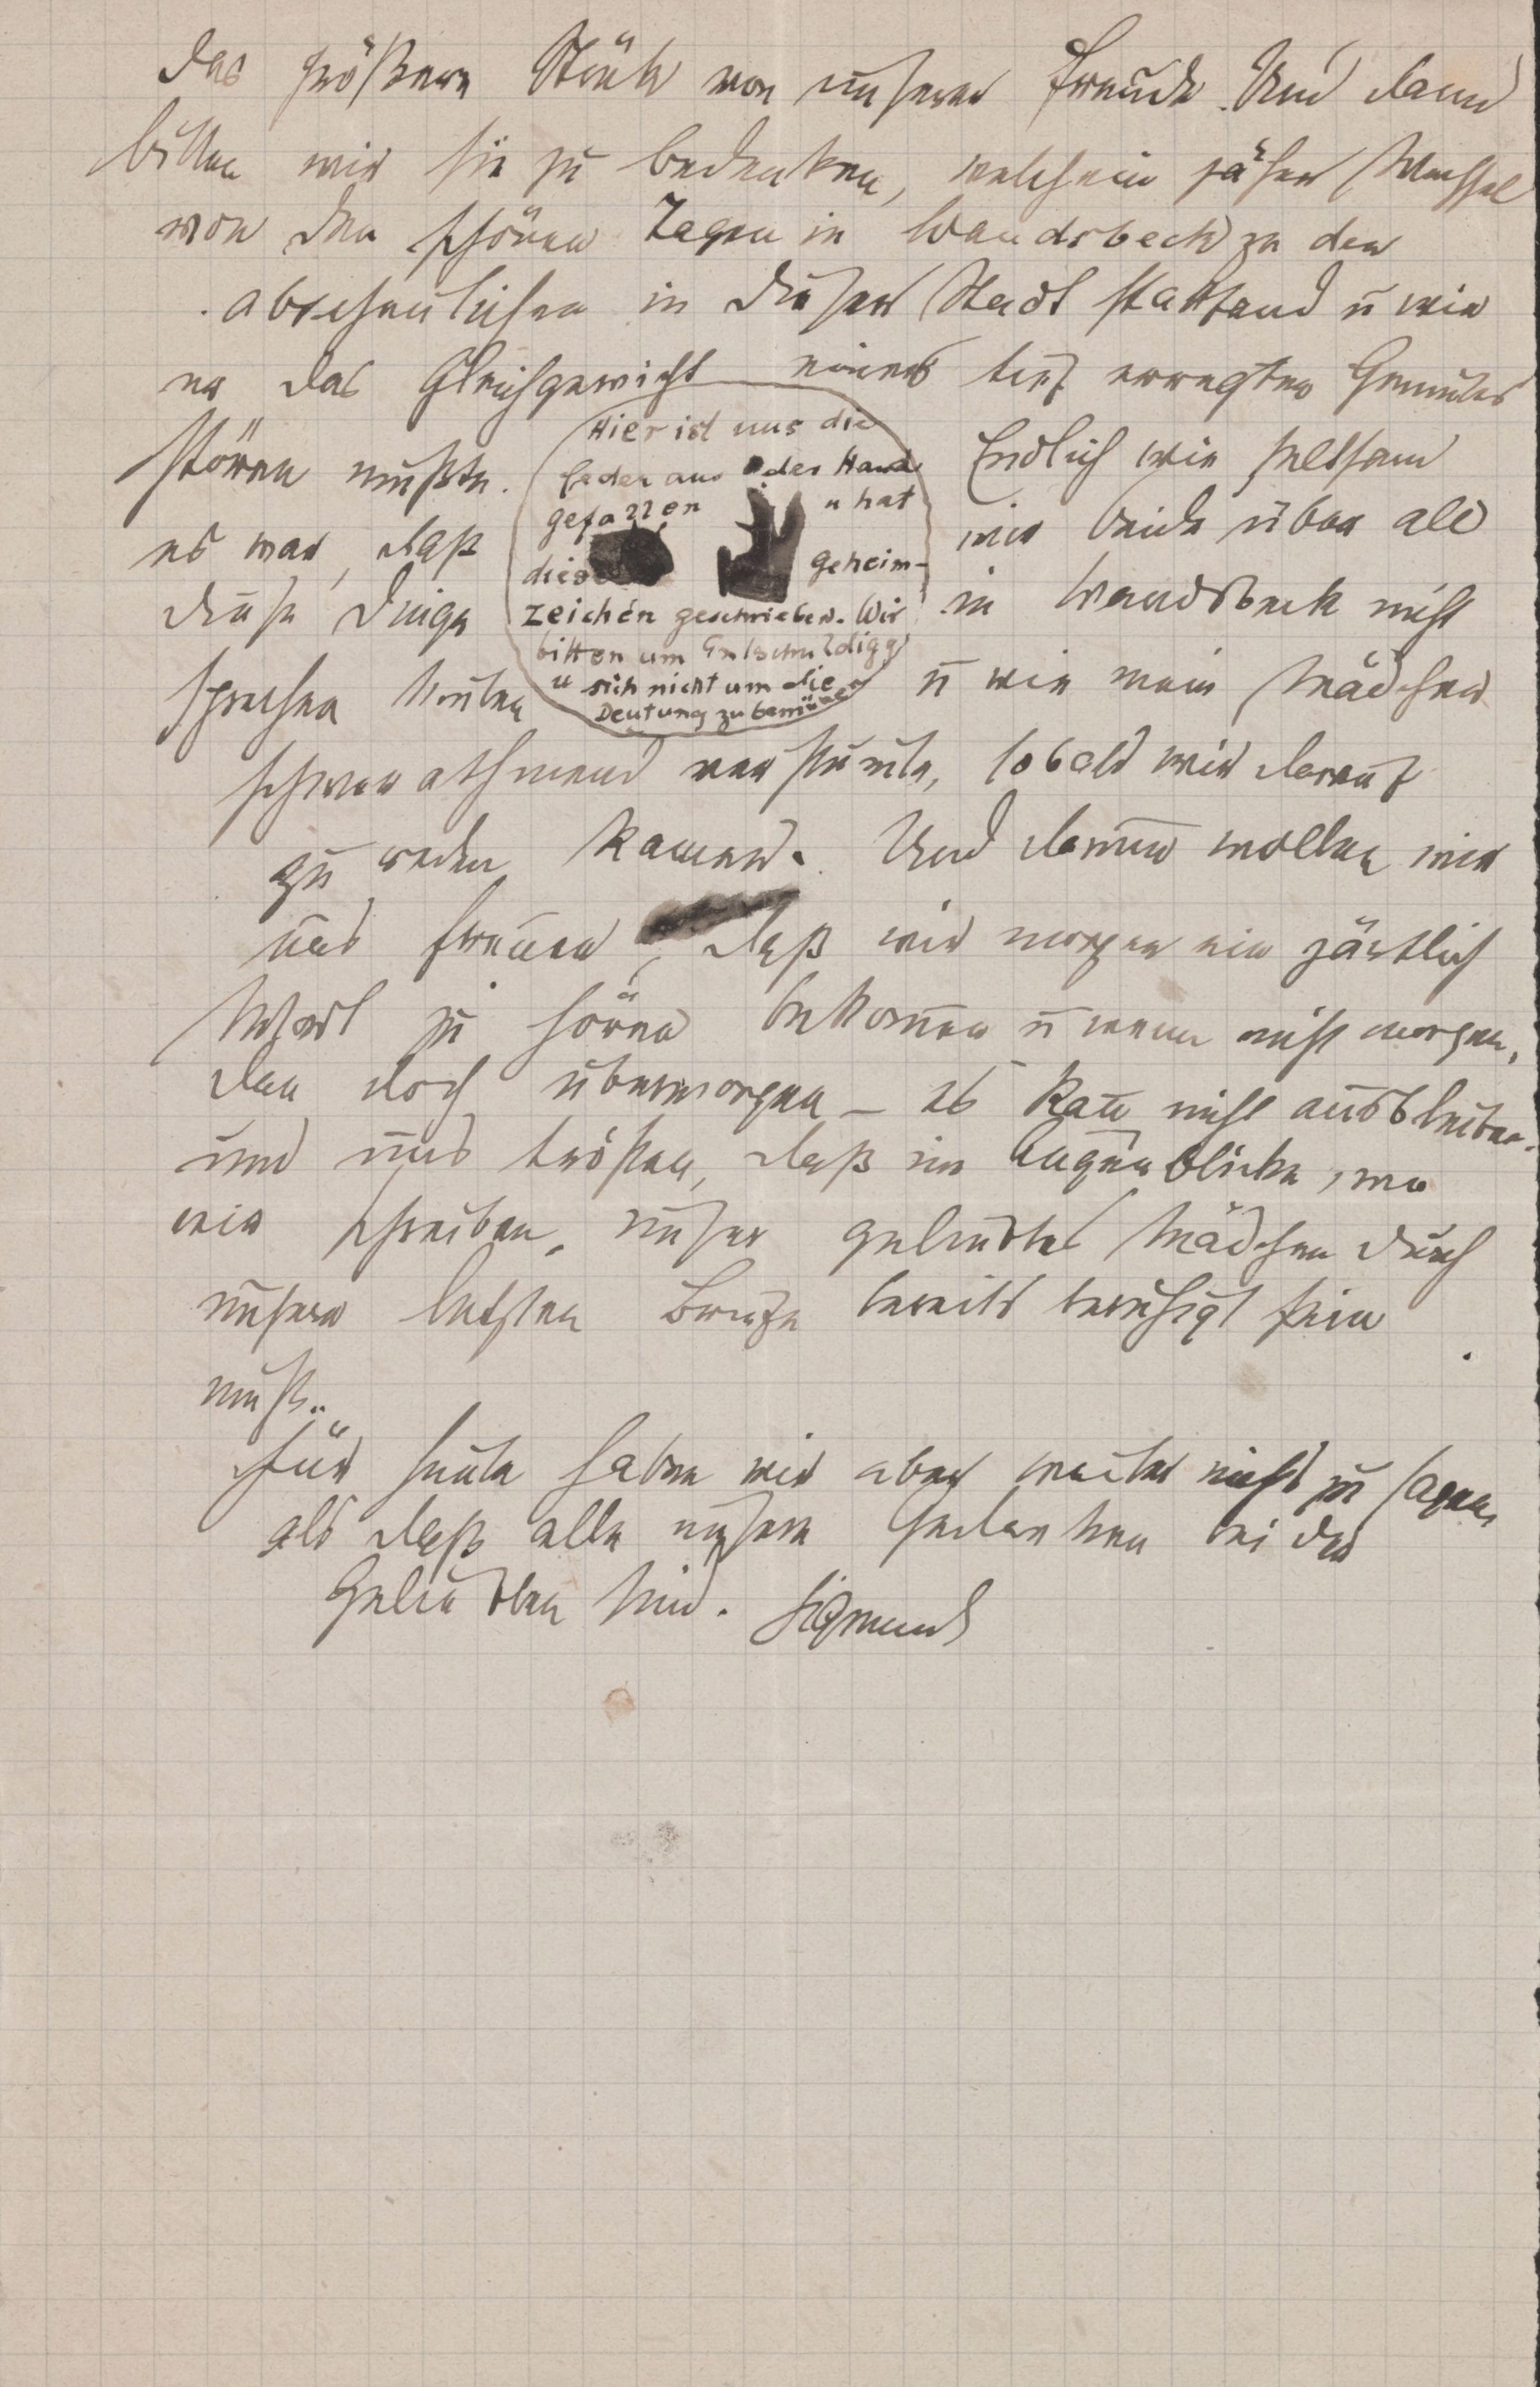 das größere Stück von unserer Freude. Und dann
bitten wir sie zu bedenken, welch ein jäher Wechsel
von den schönen Tagen in Wandsbeck zu den
abscheulichen in dieser Stadt stattfand u wie
er das Gleichgewicht eines tief erregten Gemütes
stören mußte. Endlich wie seltsam
es war, daß wir beide über all
diese Dinge in Wandsbeck nicht
sprechen konnten u wie mein Mädchen
schwer athmend verstumte, sobald wir darauf
zu reden kamen. Und darum wollen wir
uns freuen, daß wir morgen ein zärtlich
Wort zu hören bekommen u wenn nicht morgen,
dan doch übermorgen – es kann nicht ausbleiben.
und uns trösten, daß im Augenblicke, wo
wir schreiben, unser geliebtes Mädchen durch
unsere letzten Briefe bereits beruhigt sein
muß.
Für heute haben wir aber weiter nichts zu sagen
als daß alle unsere Gedanken bei der
Geliebten sind. Sigmund
Hier ist uns die
Feder aus der Hand
gefallen u hat
diese geheim-
zeichen geschrieben. Wir
bitten um Entschuldigg
u sich nicht um die
Deutung zu bemühen